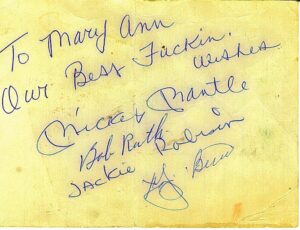 To Mary Ann
Our Best Fuckin.
Wishes
Mickey Mantle
Bob Ruth
JACKie Robison